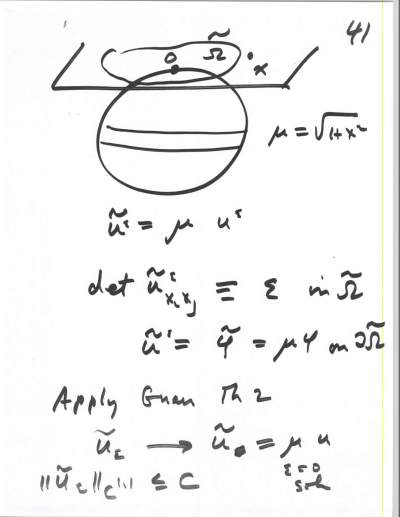 41
0 Ω̃ x
μ = √1+x²
ũ^ε = μ u^ε
det ũ^ε_{x_i x_j} ≡ ε in Ω̃
ũ^ε = φ̃ = μφ on ∂Ω̃
Apply Guan Th 2
ũ_ε → ũ_0 = μ u
||ũ_ε||_{C^{1,1}} ≤ C ε=0
Soln